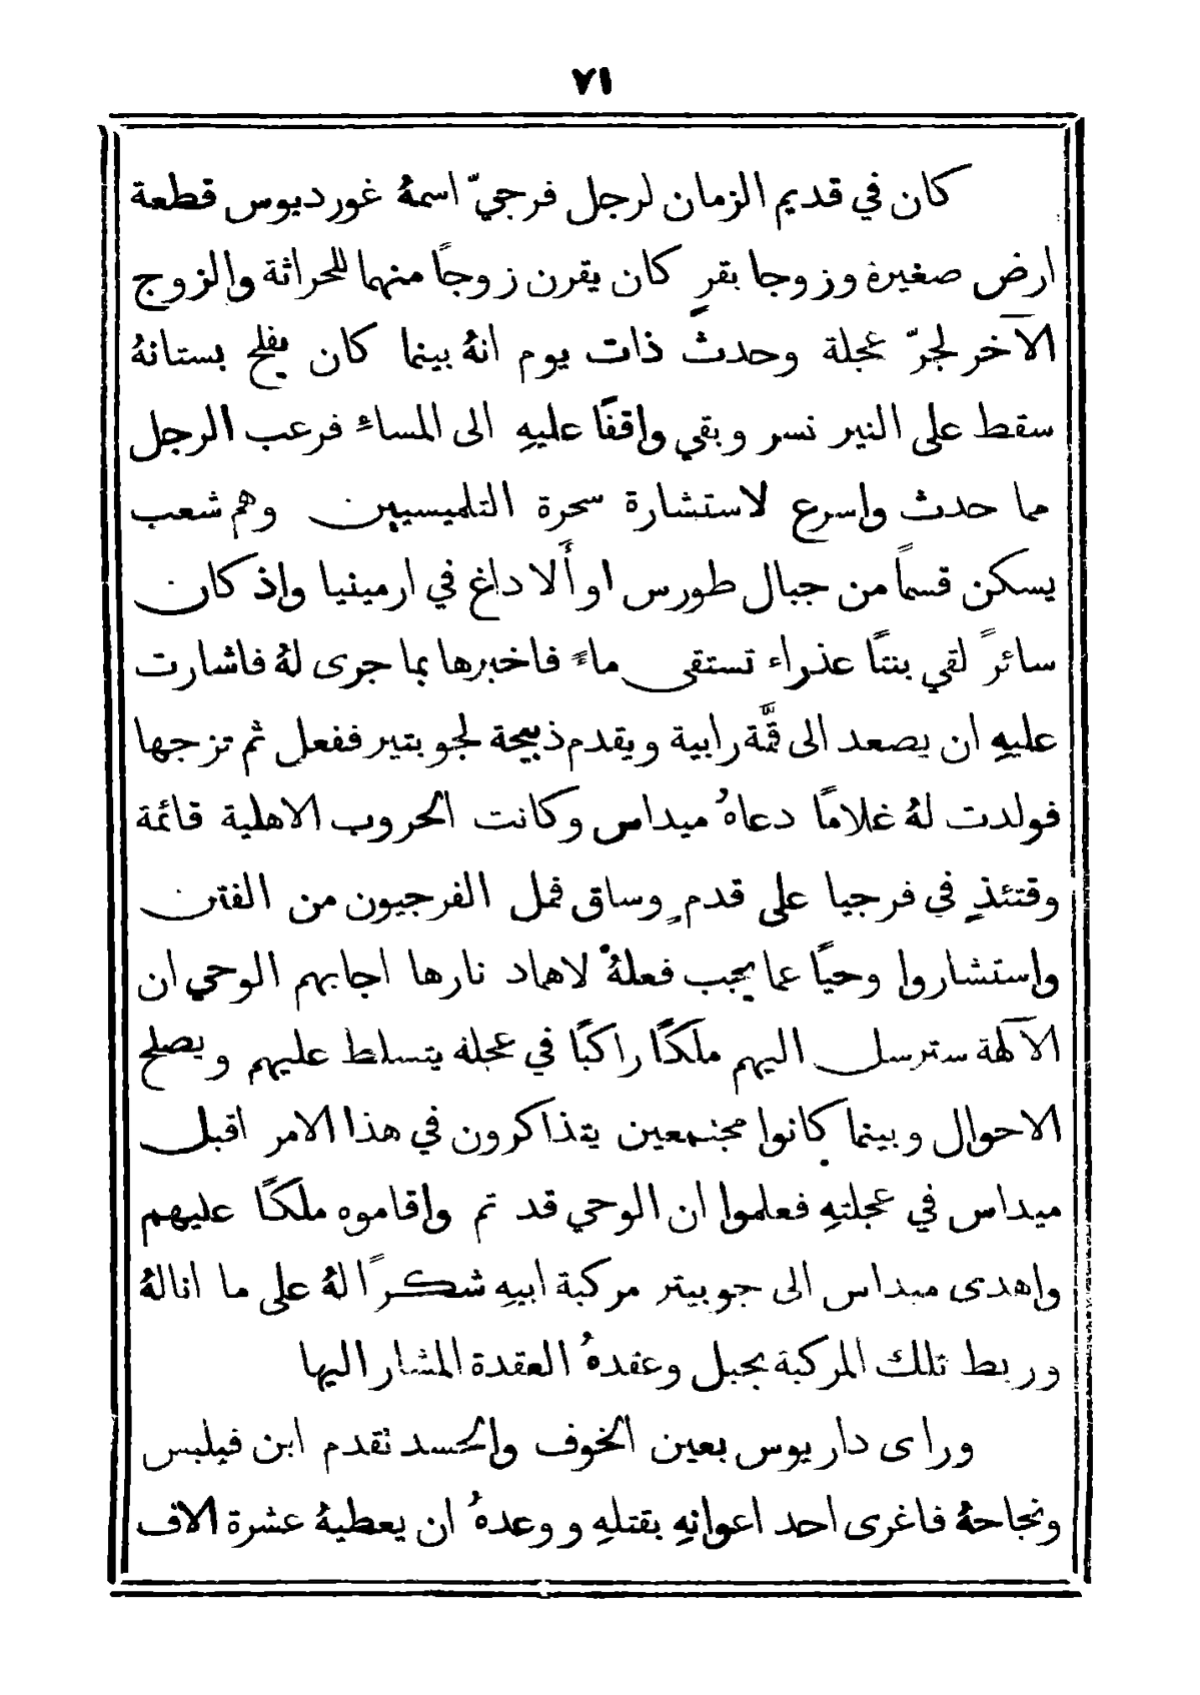 ٧١
كان في قديم الزمان لرجل فرجيّ اسمهُ غورديوس قطعة
ارض صغيرة وزوجا بقرٍ كان يقرن زوجاً منهما للحراثة والزوج
الآخر لجرّ عجلة وحدث ذات يوم انهُ بينما كان يفلح بستانهُ
سقط على النير نسر وبقي واقفًا عليهِ الى المساء فرعب الرجل
مما حدث واسرع لاستشارة سحرة التلميسيين وهم شعب
يسكن قسماً من جبال طورس او ألا داغ في ارمينيا واذ كان
سائرً لقي بنتًا عذراء تستقي ماءً فاخبرها بما جرى لهُ فاشارت
عليهِ ان يصعد الى قمَّة رابية ويقدم ذبيحة لجوبتير ففعل ثم تزجها
فولدت لهُ غلامًا دعاهُ ميداس وكانت الحروب الاهلية قائمة
وقتئذٍ في فرجيا على قدم ٍوساق فمل الفرجيون من الفتن
واستشاروا وحيًا عما يجب فعلهُ لاهماد نارها اجابهم الوحي ان
الآلهة سترسل اليهم ملكًا راكبًا في عجلة يتسلط عليهم ويصلح
الاحوال وبينما كانوا مجتمعين يتذاكرون في هذا الامر اقبل
ميداس في عجلتهِ فعلموا ان الوحي قد تم واقاموه ملكًا عليهم
واهدى ميداس الى جوبيتر مركبة ابيهِ شكرًا لهُ على ما انالهُ
وربط تلك المركبة بحبل وعقدهُ العقدة المشار اليها
وراى داريوس بعين الخوف والحسد تقدم ابن فيلبس
ونجاحهُ فاغرى احد اعوانهِ بقتلهِ ووعدهُ ان يعطيهُ عشرة الاف